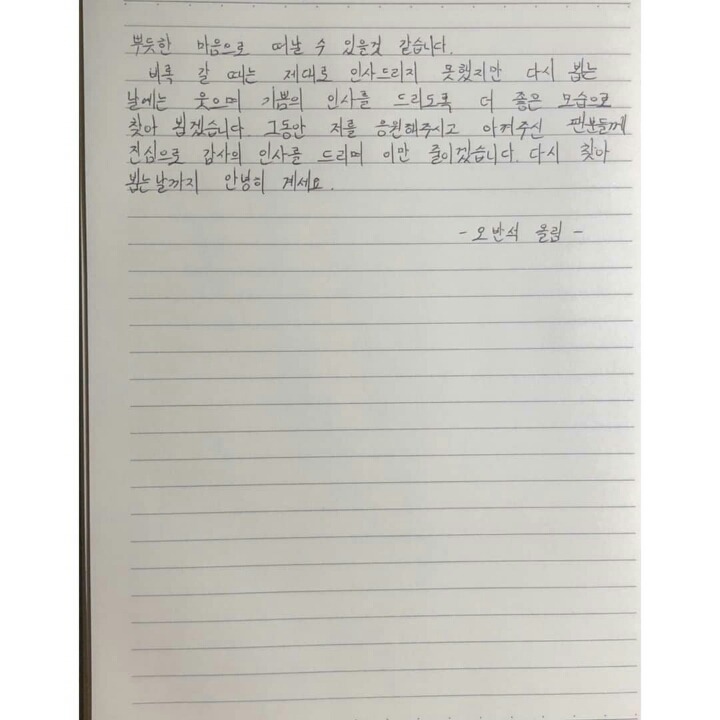 뿌듯한 마음으로 떠날 수 있을것 같습니다.
비록 갈 때는 제대로 인사드리지 못했지만 다시 뵙는
날에는 웃으며 기쁨의 인사를 드리도록 더 좋은 모습으로
찾아 뵙겠습니다. 그동안 저를 응원해주시고 아껴주신 팬분들께
진심으로 감사의 인사를 드리며 이만 줄이겠습니다. 다시 찾아
뵙는날까지 안녕히 계세요.
- 오반석 올림 -